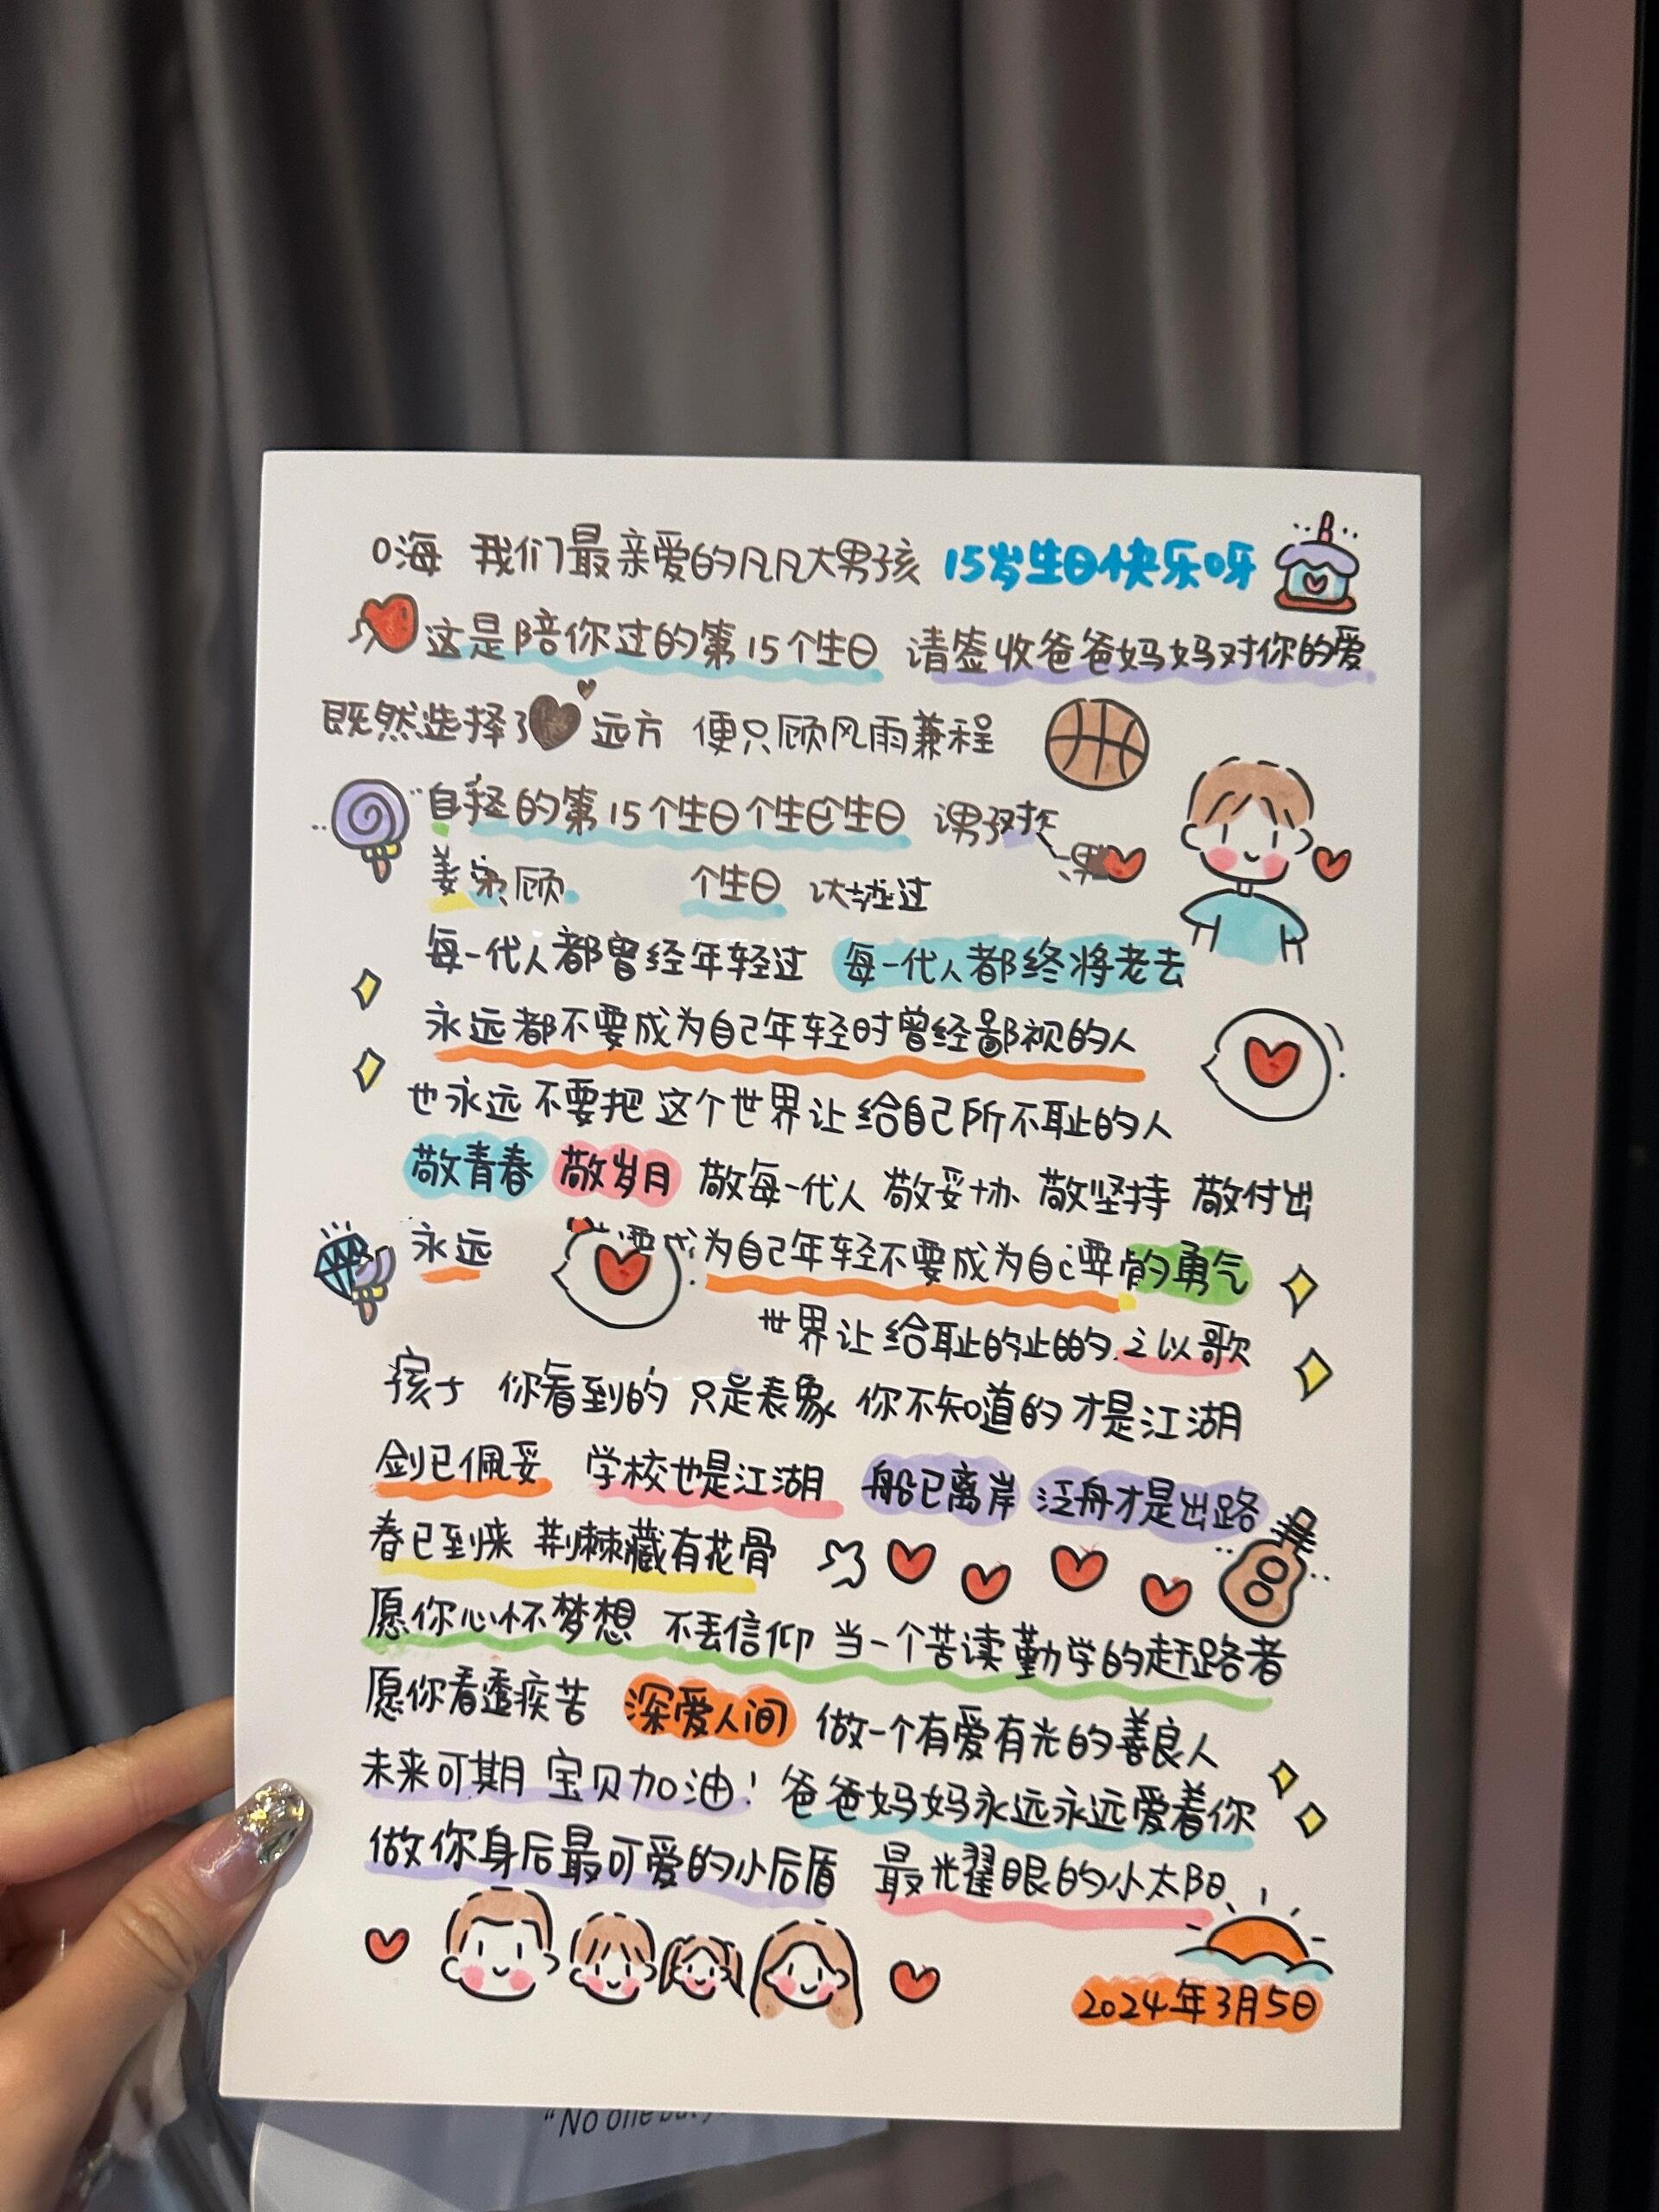 O海 我们最亲爱的凡凡大男孩 15岁生日快乐呀
这是陪你过的第15个生日 请签收爸爸妈妈对你的爱
既然选择了 远方 便只顾风雨兼程
的第15个生日个生 生日
顾 个生日 过
每一代人都曾经年轻过 每一代人都终将老去
永远都不要成为自己年轻时曾经鄙视的人
也永远不要把这个世界让给自己所不耻的人
敬青春 敬岁月 敬每一代人 敬妥协 敬坚持 敬付出
永远 为自己年轻不要成为自己 的勇气
世界让给耻的 之以歌
孩子 你看到的 只是表象 你不知道的才是江湖
剑已佩妥 学校也是江湖 船已离岸 泛舟才是出路
春已到来 荆棘藏有花骨
愿你心怀梦想 不丢信仰 当一个苦读勤学的赶路者
愿你看透疾苦 深爱人间 做一个有爱有光的善良人
未来可期 宝贝加油! 爸爸妈妈永远永远爱着你
做你身后最可爱的小后盾 最光耀眼的小太阳
2024年3月5日
"No one